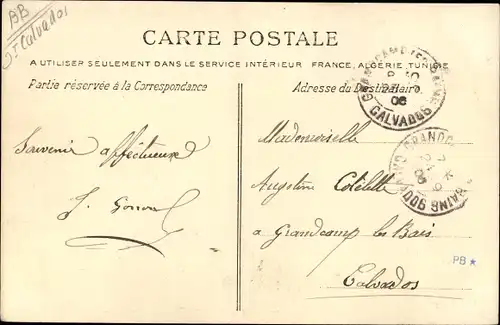 BB
Dt Calvados
CARTE POSTALE
A UTILISER SEULEMENT DANS LE SERVICE INTÉRIEUR FRANCE, ALGÉRIE, TUNISIE
Partie réservée à la Correspondance
Adresse du Destinataire
CALVADOS
Souvenir affectueux
J.
Mademoiselle
Augustine
a Grandcamp les Bains
Calvados
PB